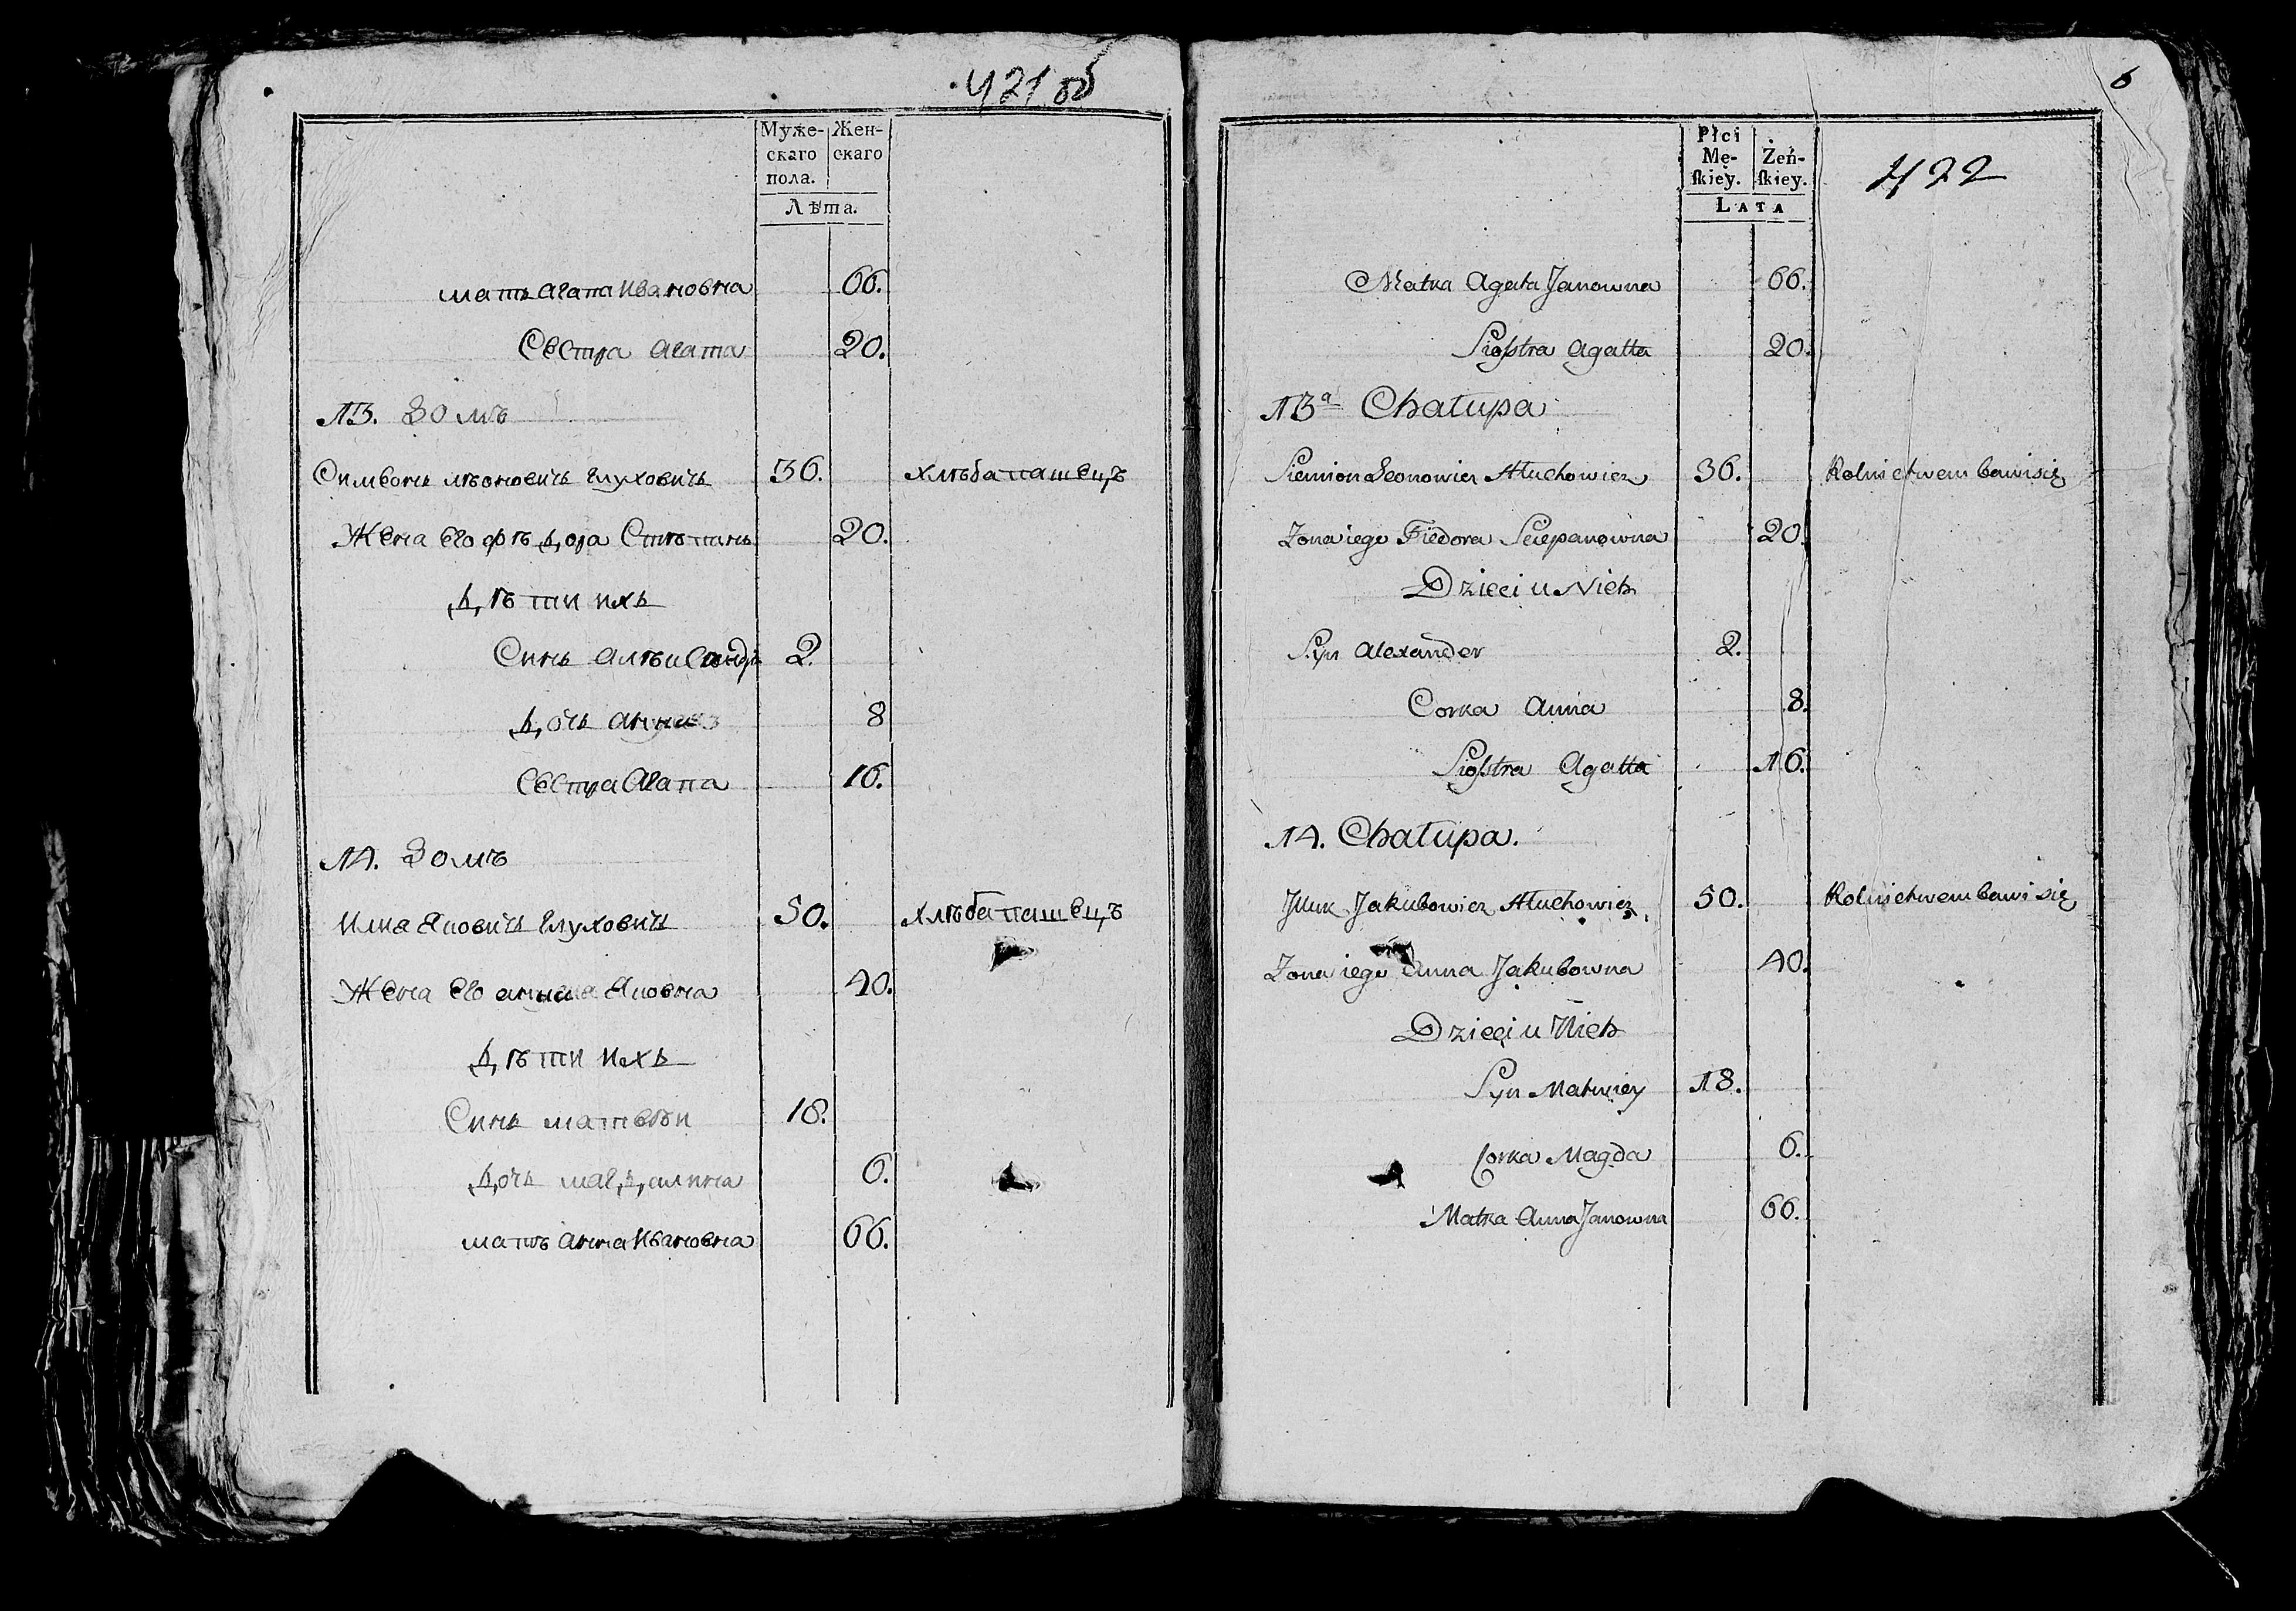 421 об
Муже-
скаго
пола.
Жен-
скаго
Лѣта.
мать агата Ивановна 66.
Сестра агата 20.
13. Домъ
Симеонъ лѣоновичъ глуховичъ 36. хлѣбапашецъ
Жена его фѣдора Стѣпанъ 20.
дѣти ихъ
Синъ алѣксандръ 2.
дочь анна 8
Сестра Агата 16.
14. Домъ
Илиа Яковичъ глуховичъ 50. хлѣбапашецъ
Жена его анна Яковна 40.
дѣти ихъ
Синъ матвѣи 18.
дочь магдалина 6.
мать анна Ивановна 66.
6
422
Płci
Mę-
ſkiey.
Żeń-
ſkiey.
LATA
Matka Agata Janowna 66.
Siostra Agatta 20.
13ª Chałupa
Siemion Leonowicz Hłuchowicz 36. Rolnictwem bawi się
Zona iego Fiedora Sciepanowna 20.
Dzieci u Nich
Syn Alexander 2.
Corka Anna 8.
Siostra Agatta 16.
14. Chałupa.
Jlluk Jakubowicz Hłuchowicz 50. Rolnictwem bawi się
Zona iego Anna Jakubowna 40.
Dzieci u Nich
Syn Matwiey 18.
Corka Magda 6.
Matka Anna Janowna 66.